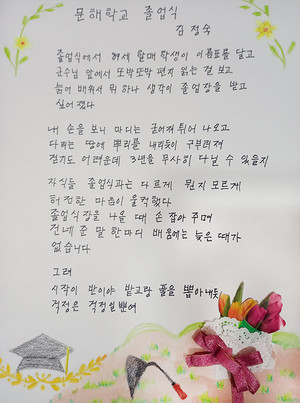 문해학교 졸업식
김정숙
졸업식에서 여세 할매 학생이 이름표를 달고
군수님 앞에서 또박또박 편지 읽는 걸 보고
늙어 배워서 뭐 하나 생각이 졸업장을 받고
싶어졌다
내 손을 보니 마디는 굵어져 튀어 나오고
다리는 땅에 뿌리를 내리듯이 구부러져
걷기도 어려운데 3년을 무사히 다닐 수 있을지
자식들 졸업식과는 다르게 뭔지 모르게
허전한 마음이 울컥했다
졸업식장을 나올 때 손 잡아 주며
건네준 말 한마디 배움에는 늦은 때가
없습니다
그래
시작이 반이야 밭고랑 풀을 뽑아내듯
걱정은 걱정일 뿐이